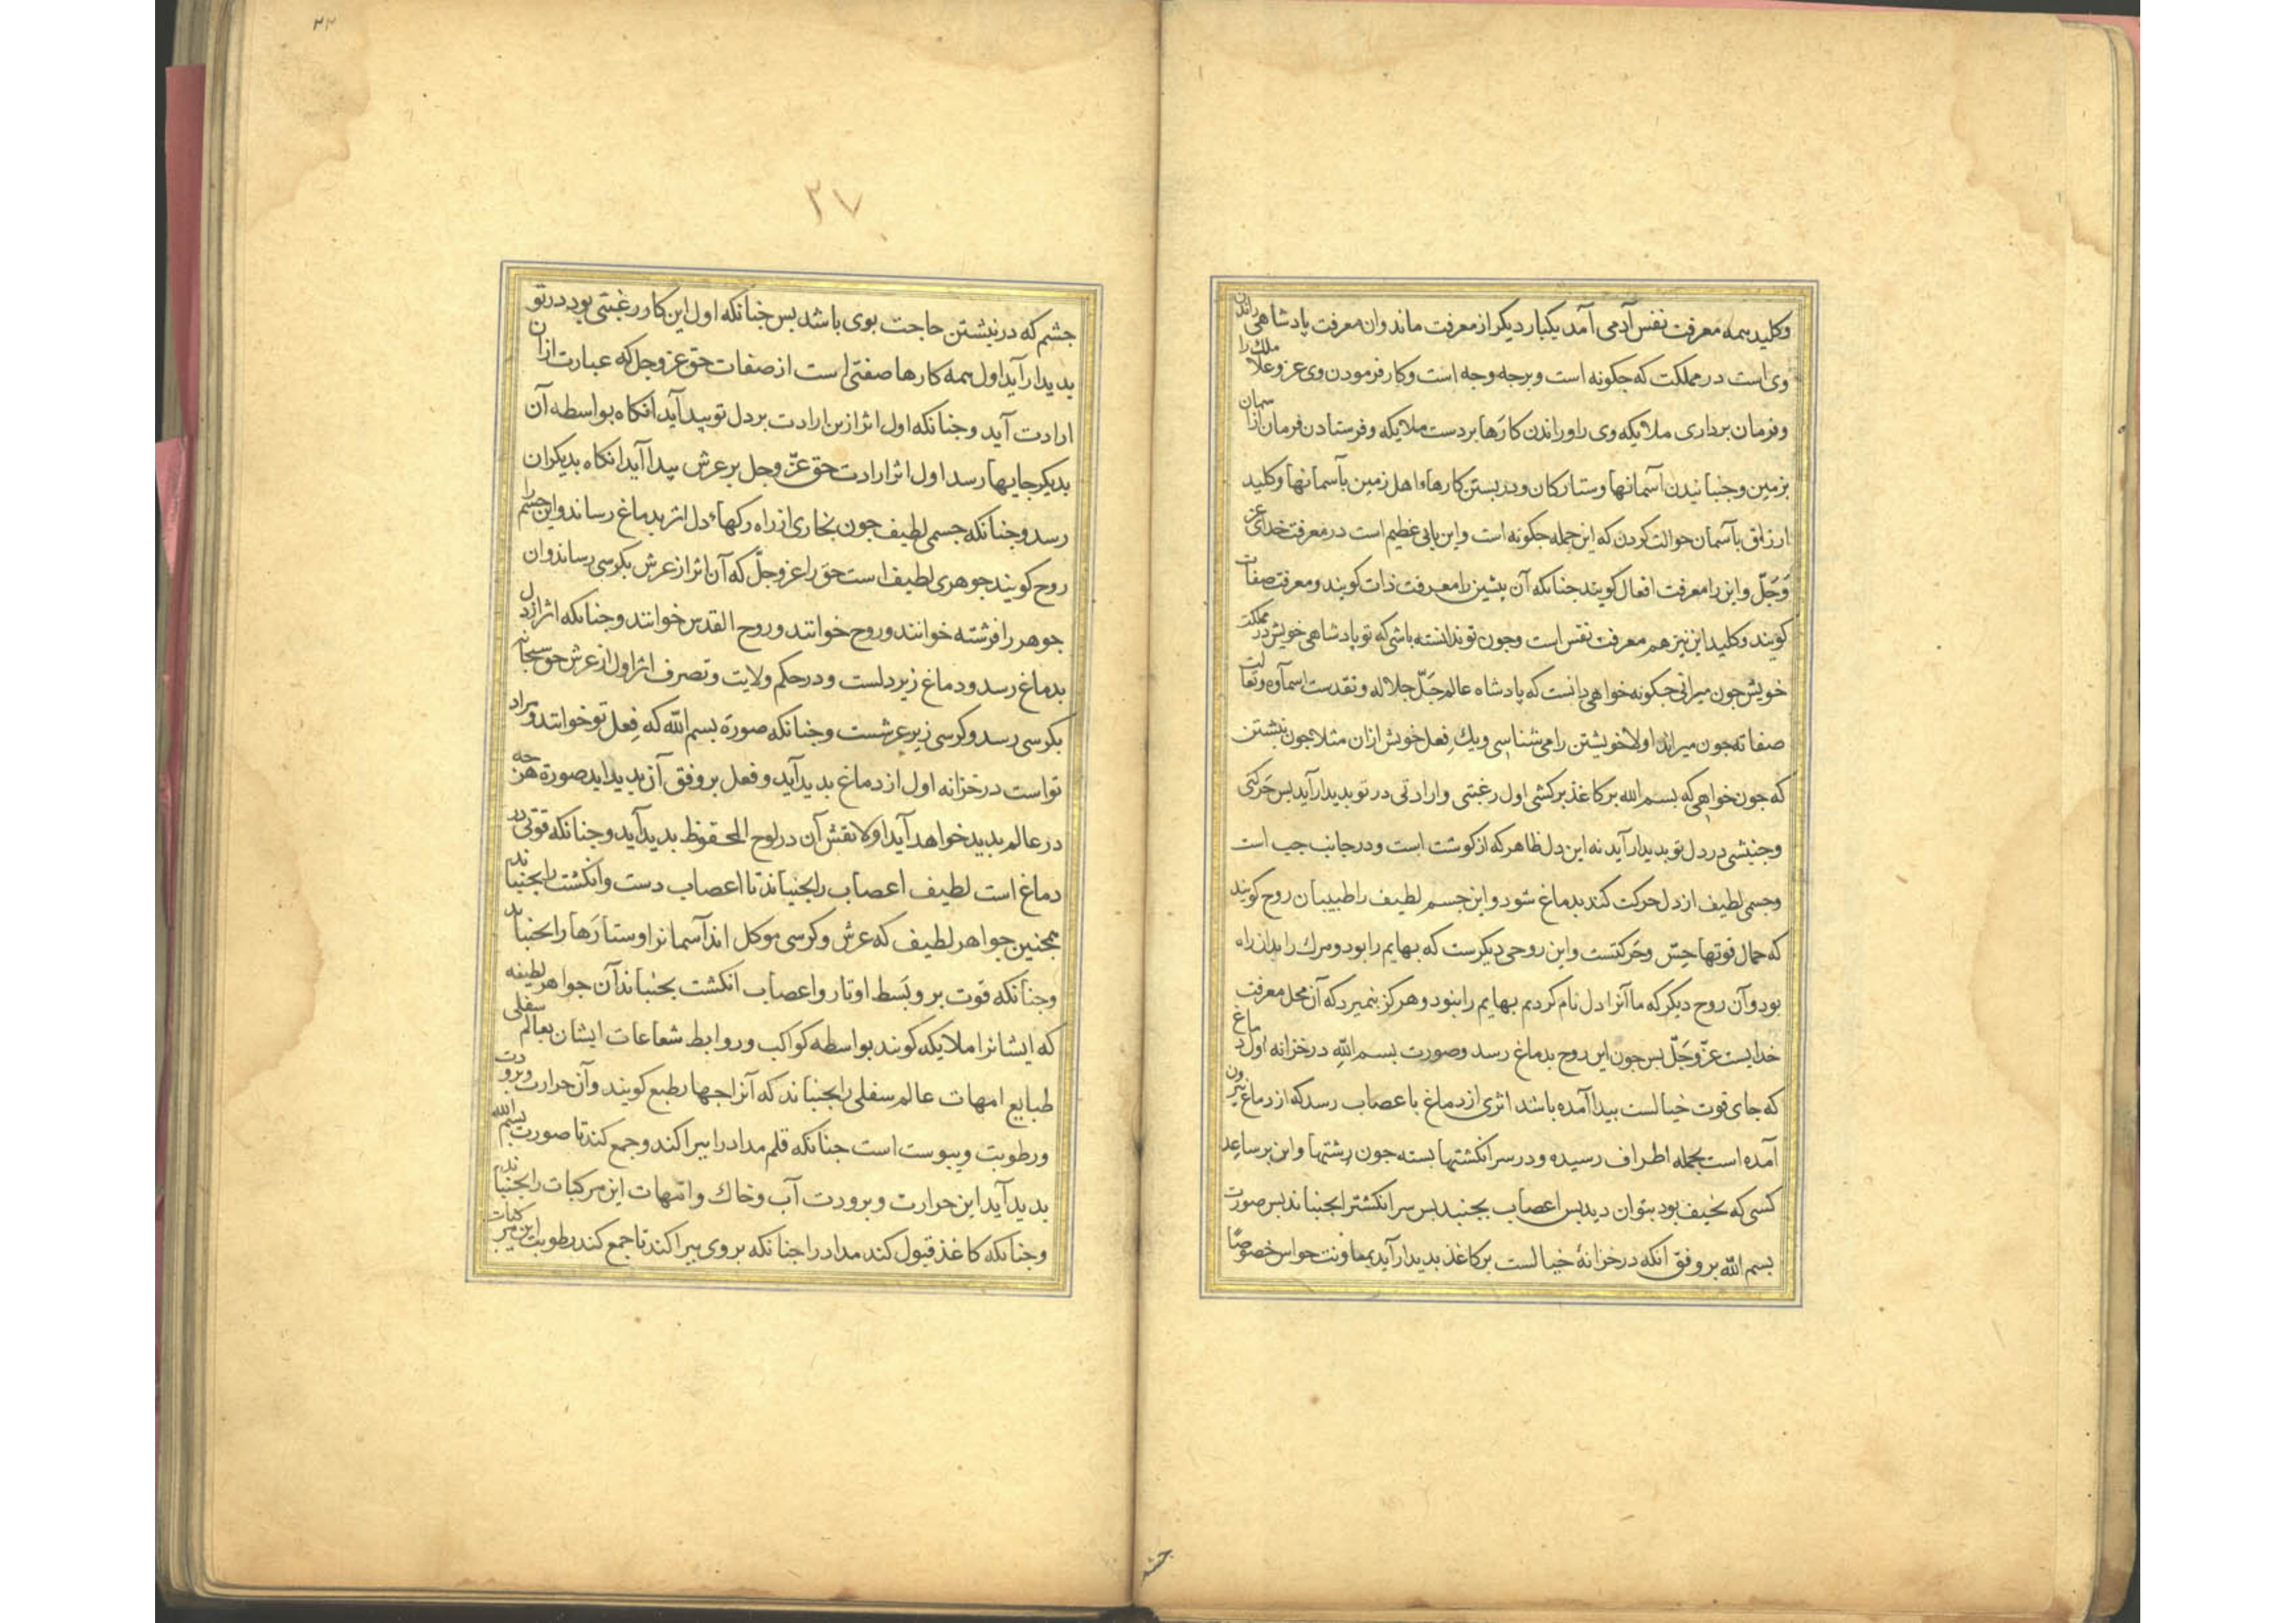 وکلید همه معرفت نفس آدمی آمد یکبار دیکر از معرفت ماند وان معرفت پادشاهی راندن
وی است در مملکت که جکونه است و برجه وجه است وکار فرمودن وی عز وعلا ملک را
وفرمان برداری ملایکه وی را وراندن کارها بردست ملایکه وفرستادن فرمان از آسمان
بزمین وجنبانیدن آسمانها وستارکان ودربستن کارهاء اهل زمین بآسمانها وکلید
ارزاق بآسمان حوالت کردن که این جمله جکونه است واین بابی عظیم است در معرفت خدای عز
وَجَلّ واین را معرفت افعال کویند جنانکه آن بیشین را معرفت ذات کویند ومعرفت صفات
کویند وکلید این نیز هم معرفت نفس است وجون تو ندانسته باشی که تو پادشاهی خویش در مملکت
خویش جون میرانی جکونه خواهی دانست که پادشاه عالم جَلّ جلاله وتقدست اسمآوه وتعالت
صفاته جون میراند اولا خویشتن را می شناسی ویک فِعل خویش ازان مثلا جون نبشتن
که جون خواهی که بسم الله بر کاغذ برکشی اول رغبتی وارادتی در تو بدیدار آید بس حَرکتی
وجنبشی در دل تو بدیدار آید نه این دل ظاهر که از کوشت است ودر جانب جب است
وجسمی لطیف از دل حرکت کند بدماغ شود واین جسم لطیف را طبیبان روح کویند
که حمال قوتها حِسّ وحَرکتست واین روحی دیکرست که بهایم را بود ومرک را بدان راه
بود وآن روح دیکر که ما آنرا دل نام کردیم بهایم را نبود وهرکز بنمیرد که آن محل معرفت
خدایست عزّ وجَلّ بس جون این روح بدماغ رسد وصورت بسم اللّه در خزانه اول دماغ
که جای قوت خیالست بیدا آمده باشد اثری از دماغ باعصاب رسد که از دماغ بیرون
آمده است بجمله اطراف رسیده ودر سر انکشتها بسته جون رشتها واین بر ساعِد
کسی که نحیف بود بتوان دید بس اعصاب بجنبد بس سر انکشت را بجنباند بس صورت
بسم اللّه بر وفق انکه در خزانهٔ خیالست بر کاغذ بدیدار آید بمعاونت حواس خصوصًا
جشم
۲۲
۲۷
جشم که در نبشتن حاجت بوی باشد بس جنانکه اول این کار رغبتی بود در تو
بدیدار آید اول همه کارها صفتی است از صفات حق عز وجل که عبارت ازان
ارادت آید وجنانکه اول اثر ازین ارادت بر دل تو بیدا آید آنکاه بواسطه آن
بدیکر جایها رسد اول اثر ارادت حق عزّ وجل بر عرش بیدا آید انکاه بدیکران
رسد وجنانکه جسمی لطیف جون بخاری از راه رکهاء دل اثر بدماغ رساند واین جسم را
روح کویند جوهری لطیف است حق را عز وجلّ که آن اثر از عرش بکرسی رساند وان
جوهر را فرشته خوانند وروح خوانند وروح القدس خوانند وجنانکه اثر از دل
بدماغ رسد ودماغ زیر دلست ودر حکم ولایت وتصرف اثر اول از عرش حق سبحانه
بکرسی رسد وکرسی زیر عرشست وجنانکه صورة بسم اللّه که فِعل تو خوانند ومراد
تو است در خزانه اول از دماغ بدید آید وفعل بر وفق آن بدید اید صورة هرجه
در عالم بدید خواهد آید اولا نقش آن در لوح المحفوظ بدید آید وجنانکه قوتی در
دماغ است لطیف اعصاب را بجنباند تا اعصاب دست وانکشت را بجنباند
همجنین جواهر لطیف که عرش وکرسی موکل اند آسمانرا وستارَها را بجنباند
وجنانکه قوت بر وبَسط اوتار واعصاب انکشت بجنباند آن جواهر لطیفه
که ایشانرا ملایکه کویند بواسطه کواکب وروابط شعاعات ایشان بعالم سفلی
طبایع امهات عالم سفلی را بجنباند که آنرا جهار طبع کویند وآن حرارت وبرودت
ورطوبت ویبوست است جنانکه قلم مداد را ببراکند وجمع کند تا صورت بسم اللّه
بدید آید این حرارت وبرودت آب وخاک وامّهات این مرکبات را بجنباند
وجنانکه کاغذ قبول کند مداد را جنانکه بر وی ببراکند تا جمع کند رطوبت این مرکبات